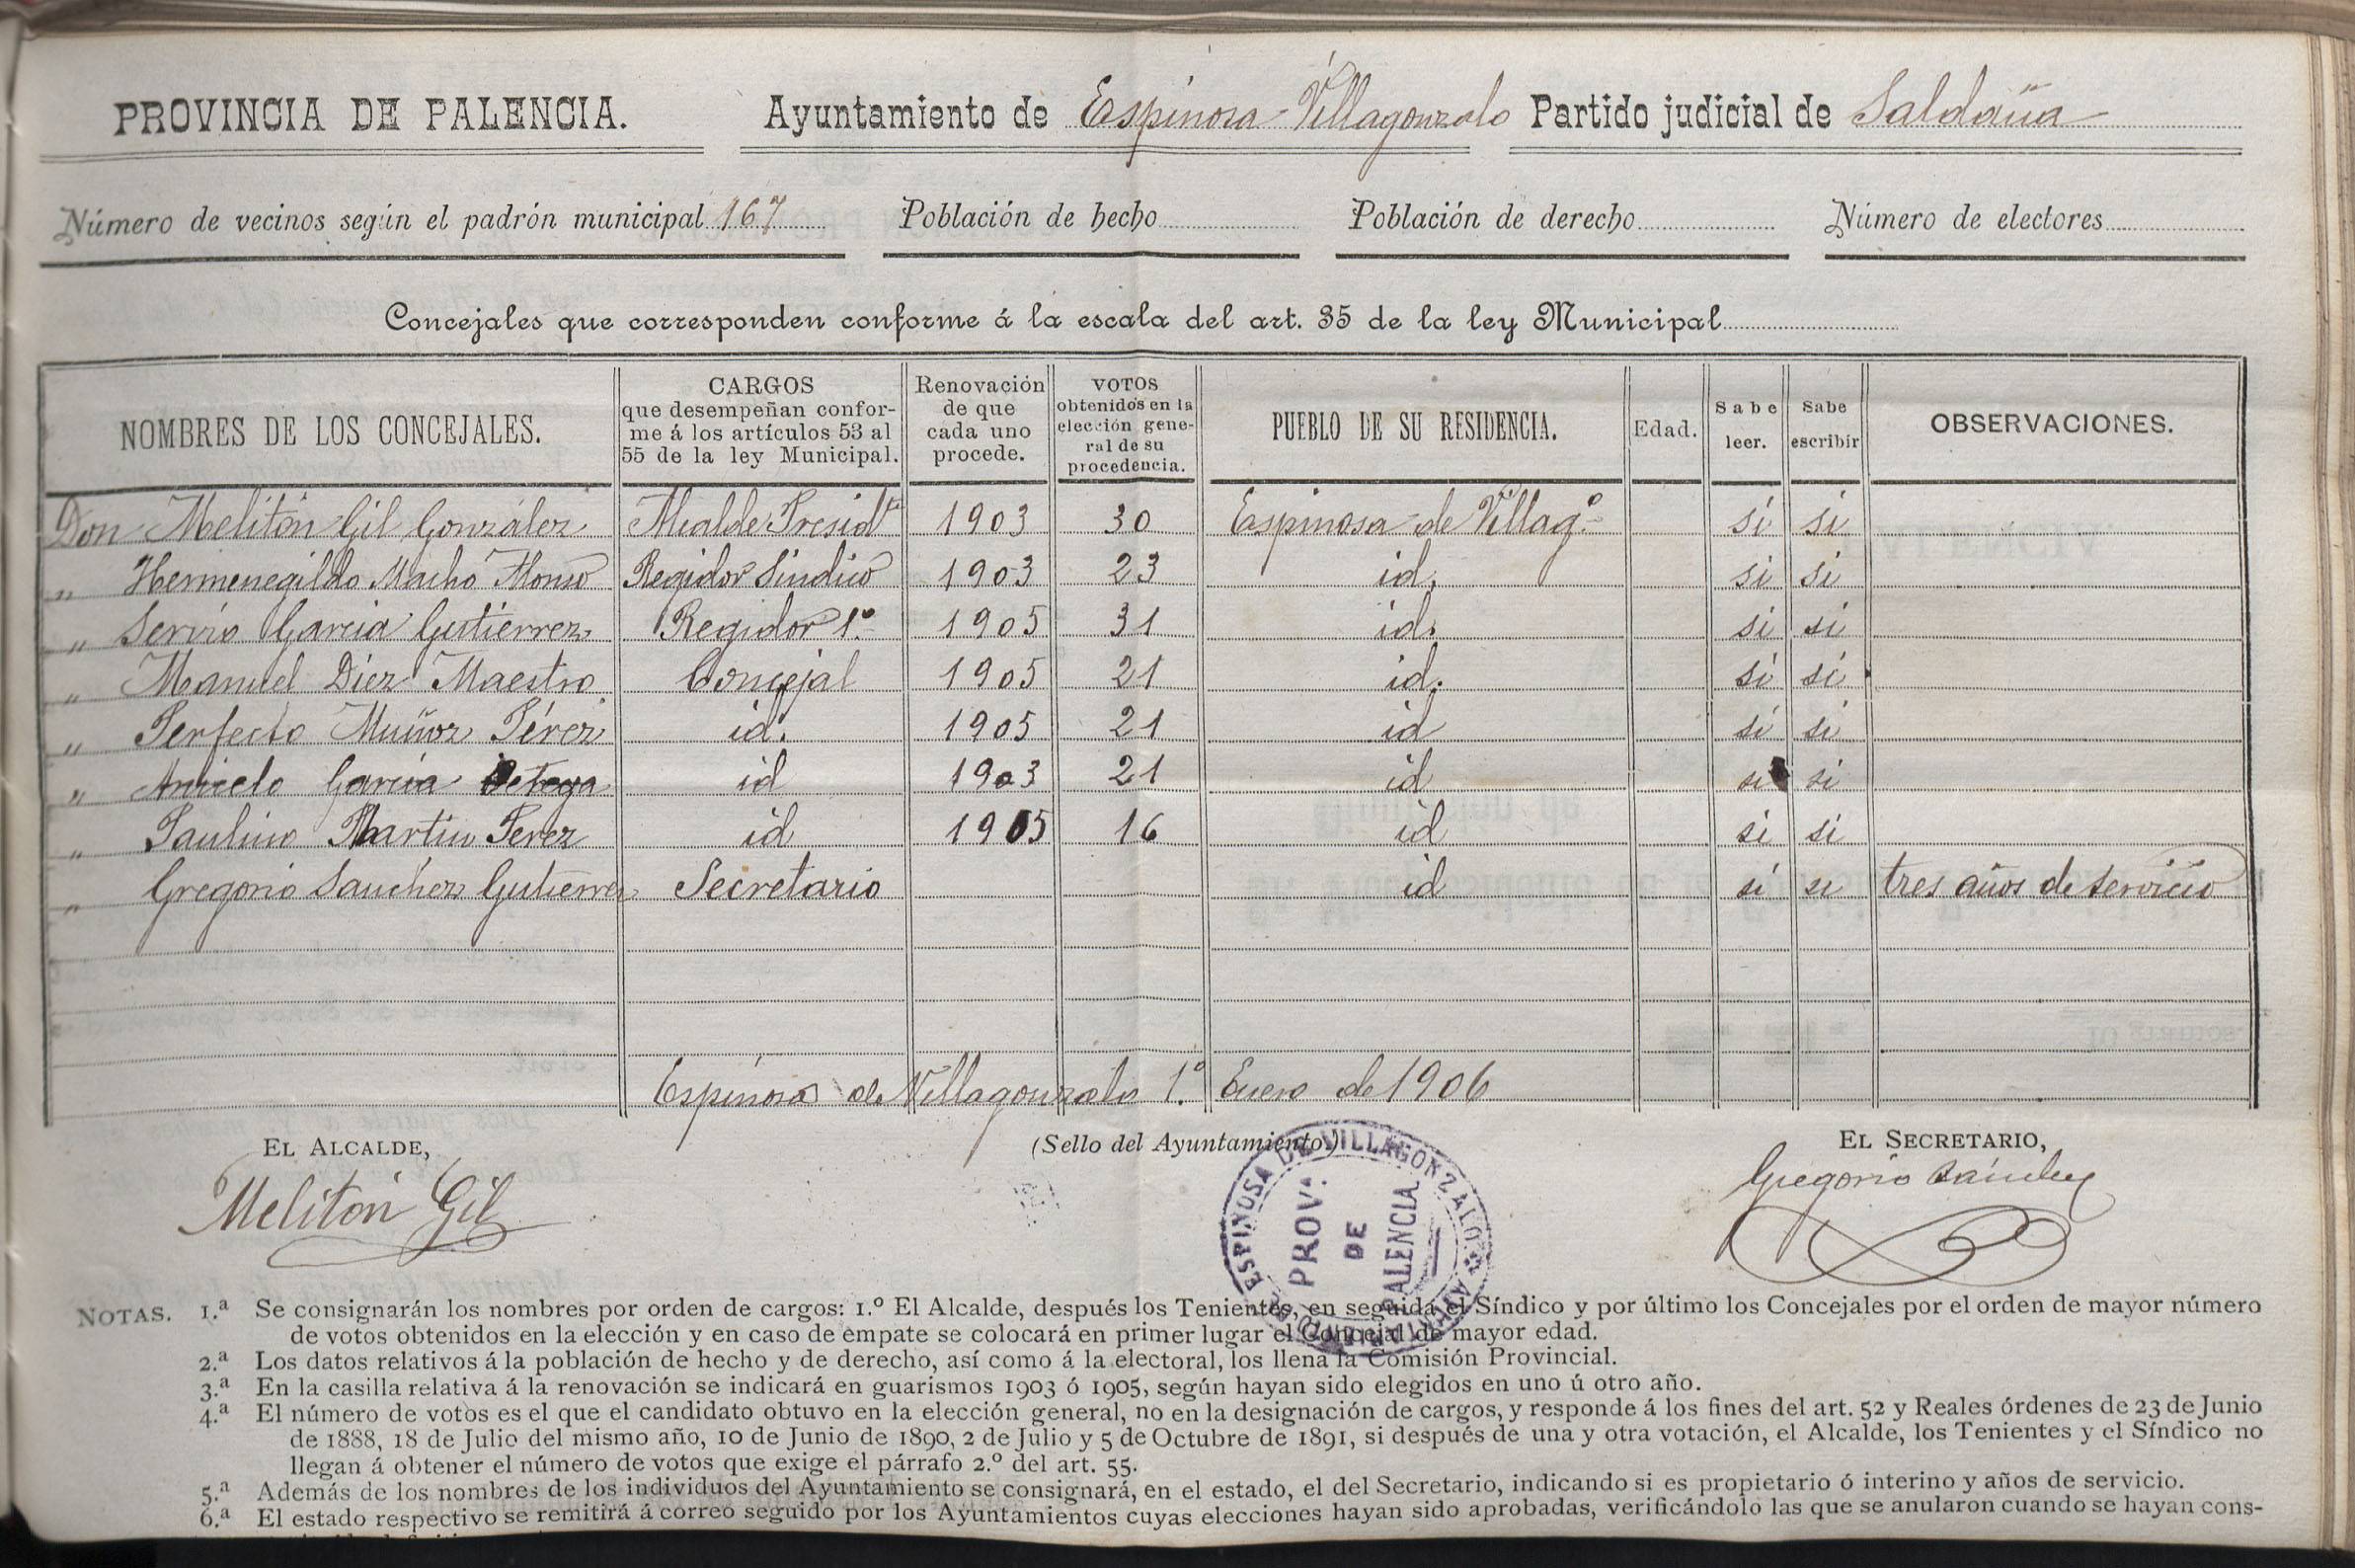 PROVINCIA DE PALENCIA. Ayuntamiento de Espinosa Villagonzalo Partido judicial de Saldaña
Número de vecinos según el padrón municipal 167 Población de hecho Población de derecho Número de electores
Concejales que corresponden conforme á la escala del art. 35 de la ley Municipal
NOMBRES DE LOS CONCEJALES. CARGOS que desempeñan conforme á los artículos 53 al 55 de la ley Municipal. Renovación de que cada uno procede. VOTOS obtenidos en la elección general de su procedencia. PUEBLO DE SU RESIDENCIA. Edad. Sabe leer. Sabe escribir OBSERVACIONES.
Don Melitón Gil González Alcalde Presidte 1903 30 Espinosa de Villagº si si
" Hermenegildo Macho Alonso Regidor Sindico 1903 23 id. si si
" García Gutiérrez Regidor 1º 1905 31 id. si si
" Manuel Diez Maestro Concejal 1905 21 id. si si
" Perfecto Muñoz Pérez id. 1905 21 id si si
" Aniceto García Ortega id 1903 21 id si si
" Paulino Martin Perez id 1905 16 id si si
" Gregorio Sanchez Gutierrez Secretario id si si tres años de servicio
Espinosa de Villagonzalo 1.º Enero de 1906
EL ALCALDE, (Sello del Ayuntamiento) EL SECRETARIO,
Melitón Gil Gregorio Sánchez
ESPINOSA DE VILLAGONZALO
PROV.ª
DE
PALENCIA
NOTAS. 1.ª Se consignarán los nombres por orden de cargos: 1.º El Alcalde, después los Tenientes, en seguida el Síndico y por último los Concejales por el orden de mayor número
de votos obtenidos en la elección y en caso de empate se colocará en primer lugar el Concejal de mayor edad.
2.ª Los datos relativos á la población de hecho y de derecho, así como á la electoral, los llena la Comisión Provincial.
3.ª En la casilla relativa á la renovación se indicará en guarismos 1903 ó 1905, según hayan sido elegidos en uno ú otro año.
4.ª El número de votos es el que el candidato obtuvo en la elección general, no en la designación de cargos, y responde á los fines del art. 52 y Reales órdenes de 23 de Junio
de 1888, 18 de Julio del mismo año, 10 de Junio de 1890, 2 de Julio y 5 de Octubre de 1891, si después de una y otra votación, el Alcalde, los Tenientes y el Síndico no
llegan á obtener el número de votos que exige el párrafo 2.º del art. 55.
5.ª Además de los nombres de los individuos del Ayuntamiento se consignará, en el estado, el del Secretario, indicando si es propietario ó interino y años de servicio.
6.ª El estado respectivo se remitirá á correo seguido por los Ayuntamientos cuyas elecciones hayan sido aprobadas, verificándolo las que se anularon cuando se hayan cons-